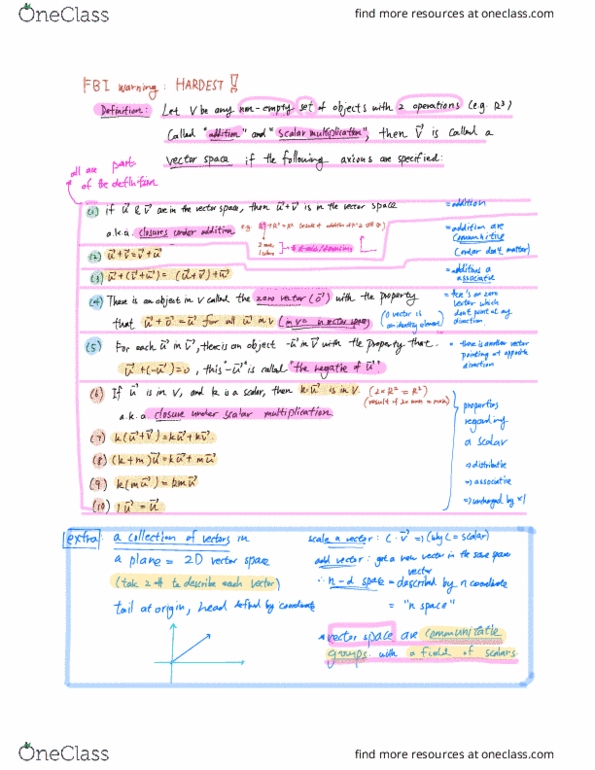 OneClass
find more resources at oneclass.com
FBI warning : HARDEST !
Definition: Let V be any non-empty set of objects with 2 operations (e.g. R³)
Called "addition" and "scalar multiplication", then V⃗ is called a
vector space if the following axioms are specified:
all are parts
of the definition
(1) if u⃗ & v⃗ are in the vector space, then u⃗+v⃗ is in the vector space = addition
a.k.a. closures under addition e.g.
(2) u⃗+v⃗ = v⃗+u⃗ = addition are communitive (order don't matter)
(3) u⃗+(v⃗+w⃗) = (u⃗+v⃗)+w⃗ = additions a associative
(4) There is an object in V called the zero vector (o⃗) with the property = there's an zero vector which don't point at any direction
that u⃗+o⃗=u⃗ for all u⃗ in V (in V = in vector space) (0 vector is an identity element)
(5) For each u⃗ in V, there is an object -u⃗ in V with the property that = there is another vector pointing at opposite direction
u⃗+(-u⃗)=0, this "-u⃗" is called "the negative of u⃗"
(6) If u⃗ is in V, and k is a scalar, then k·u⃗ is in V. (2×R²=R²)
a.k.a. closure under scalar multiplication
(7) k(u⃗+v⃗)=ku⃗+kv⃗
(8) (k+m)u⃗=ku⃗+mu⃗
(9) k(mu⃗)=kmu⃗
(10) 1u⃗=u⃗
properties
regarding
a scalar
⇒ distributive
⇒ associative
⇒ unchanged by ×1
extra: a collection of vectors in
a plane = 2D vector space
(take 2 # to describe each vector)
tail at origin, head defined by coordinate
scale a vector: C·V⃗ ⇒ (why C = scalar)
add vector: get a new vector in the same space
vector
∴ n-d space = described by n coordinate
= "n space"
* vector space are communitatie
groups with a field of scalars
OneClass
find more resources at oneclass.com